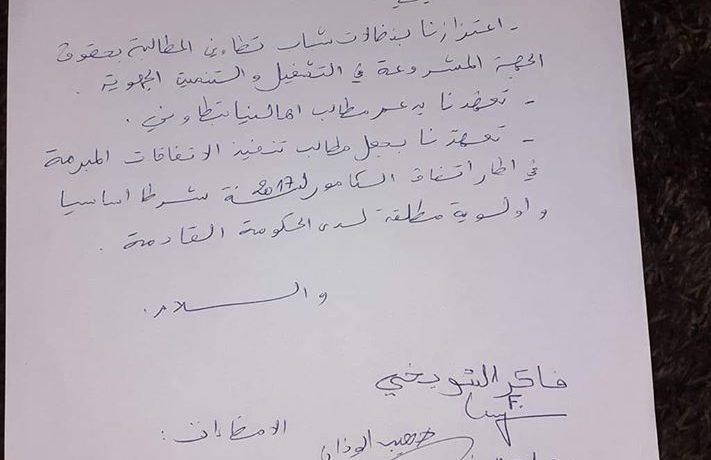 - اعتزازنا بنضالات شباب تطاوين المطالبة بحقوق
الجهة المشروعة في التشغيل والتنمية الجهوية .
- تعهدنا بدعم مطالب أهالينا بتطاوين .
- تعهدنا بجعل مطالب تنفيذ الاتفاقات المبرمة
في اطار اتفاق الكامور لسنة 2017 شرطا أساسيا
و اولوية مطلقة لدى الحكومة القادمة .
والسلام .
فاكر الشويخي
الامضاءات :
وهيب الوذان